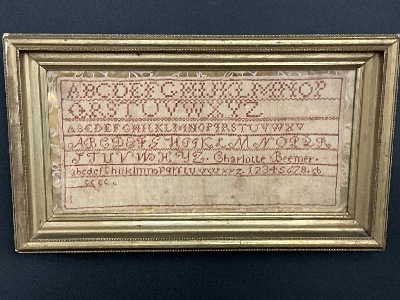 ABCDEFGHIJKLMNOP
QRSTUVWXYZ
ABCDEFGHIKLMNOPQRSTUVWXY
ABCDEFGHIJKLMNOPQR
STUVWXYZ. Charlotte Beemer.
abcdefghiklmnopqrstuvwxyz. 12345678. cb